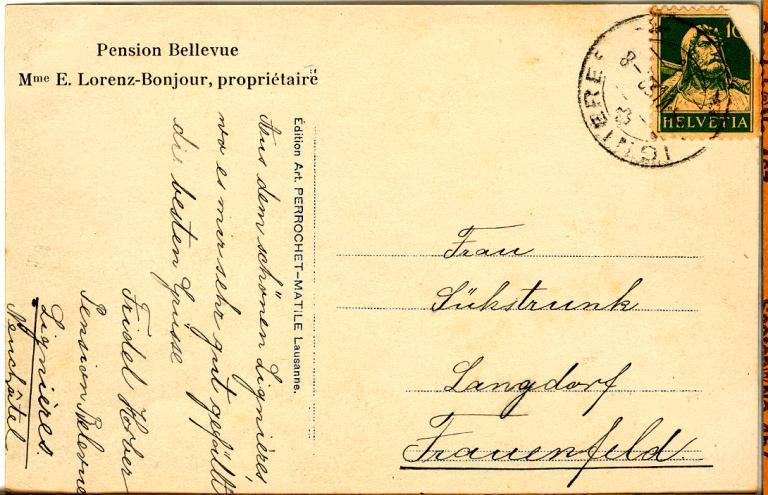 Pension Bellevue
Mme E. Lorenz-Bonjour, propriétaire
Aus dem schönen Lignières,
wo es mir sehr gut gefällt
die besten Grüsse
Fridel Hober
Pension Belevue
Lignières.
Neuchâtel
Édition Art. PERROCHET-MATILE Lausanne.
10
HELVETIA
Frau
Sükstrunk
Langdorf
Frauenfeld.